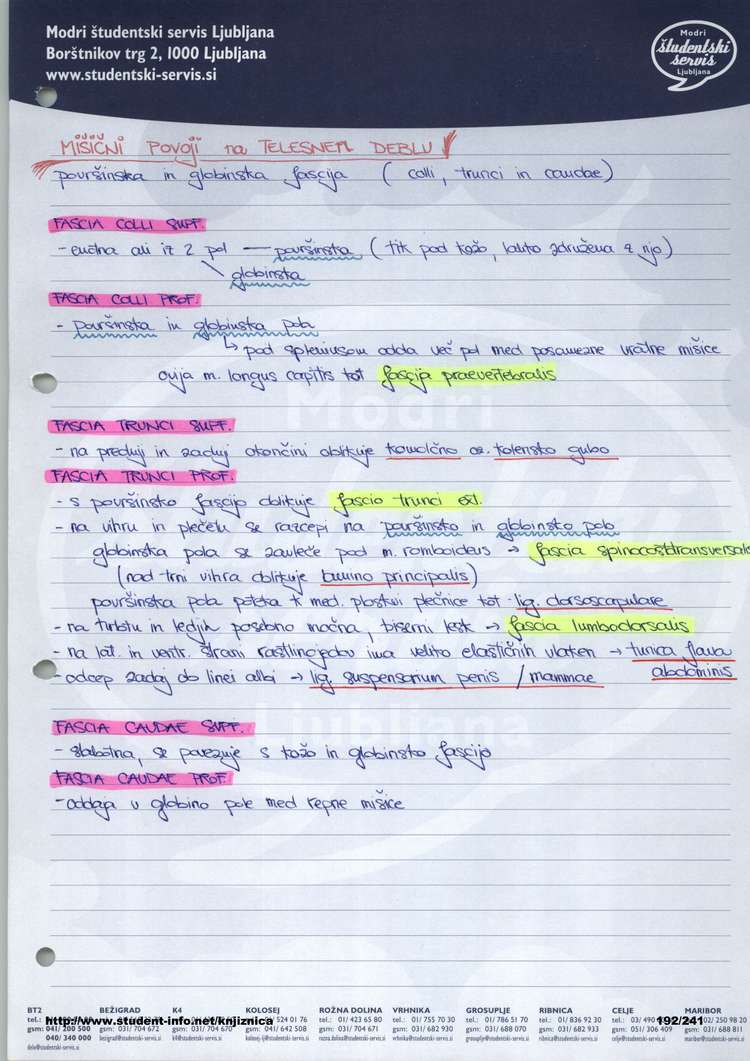 Modri študentski servis Ljubljana
Borštnikov trg 2, 1000 Ljubljana
www.studentski-servis.si
Modri
študentski
servis
Ljubljana
MIŠIČNI POVOJI na TELESNEM DEBLU
površinska in globinska fascija (colli, trunci in caudae)
FASCIA COLLI SUPF.
- enotna ali iz 2 pol — površinska (tik pod kožo, lahko združena z njo)
globinska
FASCIA COLLI PROF.
- površinska in globinska pola
↳ pod spleniusom odda več pol med posamezne vratne mišice
ovija m. longus capitis kot fascija praevertebralis
FASCIA TRUNCI SUPF.
- na prednji in zadnji okončini oblikuje komolčno oz. kolensko gubo
FASCIA TRUNCI PROF.
- s površinsko fascijo oblikuje fascio trunci ext.
- na vihru in plečetu se razcepi na površinsko in globinsko polo
globinska pola se zavleče pod m. romboideus → fascia spinocostotransversalis
(nad trni vihra oblikuje lamino principalis)
površinska pola poteka k med. ploskvi plečnice kot lig. dorsoscapulare
- na hrbtu in ledjih posebno močna, biserni lesk → fascia lumbodorsalis
- na lat. in ventr. strani rastlinojedov ima veliko elastičnih vlaken → tunica flava
abdominis
- odcep zadaj ob linei albi → lig. suspensorium penis / mammae
FASCIA CAUDAE SUPF.
- slabotna, se povezuje s kožo in globinsko fascijo
FASCIA CAUDAE PROF.
- oddaja v globino pole med repne mišice
Modri
Ljubljana
BTZ BEŽIGRAD K4 KOLOSEJ ROŽNA DOLINA VRHNIKA GROSUPLJE RIBNICA CELJE MARIBOR
http://www.student-info.net/knjiznica 192/241
524 01 76 tel.: 01/ 423 65 80 tel.: 01/ 755 70 30 tel.: 01/ 786 51 70 tel.: 01/ 836 92 30 tel.: 03/ 490 02/ 250 98 20
gsm: 041/ 200 500 gsm: 031/ 704 672 gsm: 031/ 704 670 gsm: 041/ 642 508 gsm: 031/ 704 671 gsm: 031/ 682 930 gsm: 031/ 688 070 gsm: 031/ 682 933 gsm: 051/ 306 409 gsm: 031/ 688 811
040/ 340 000